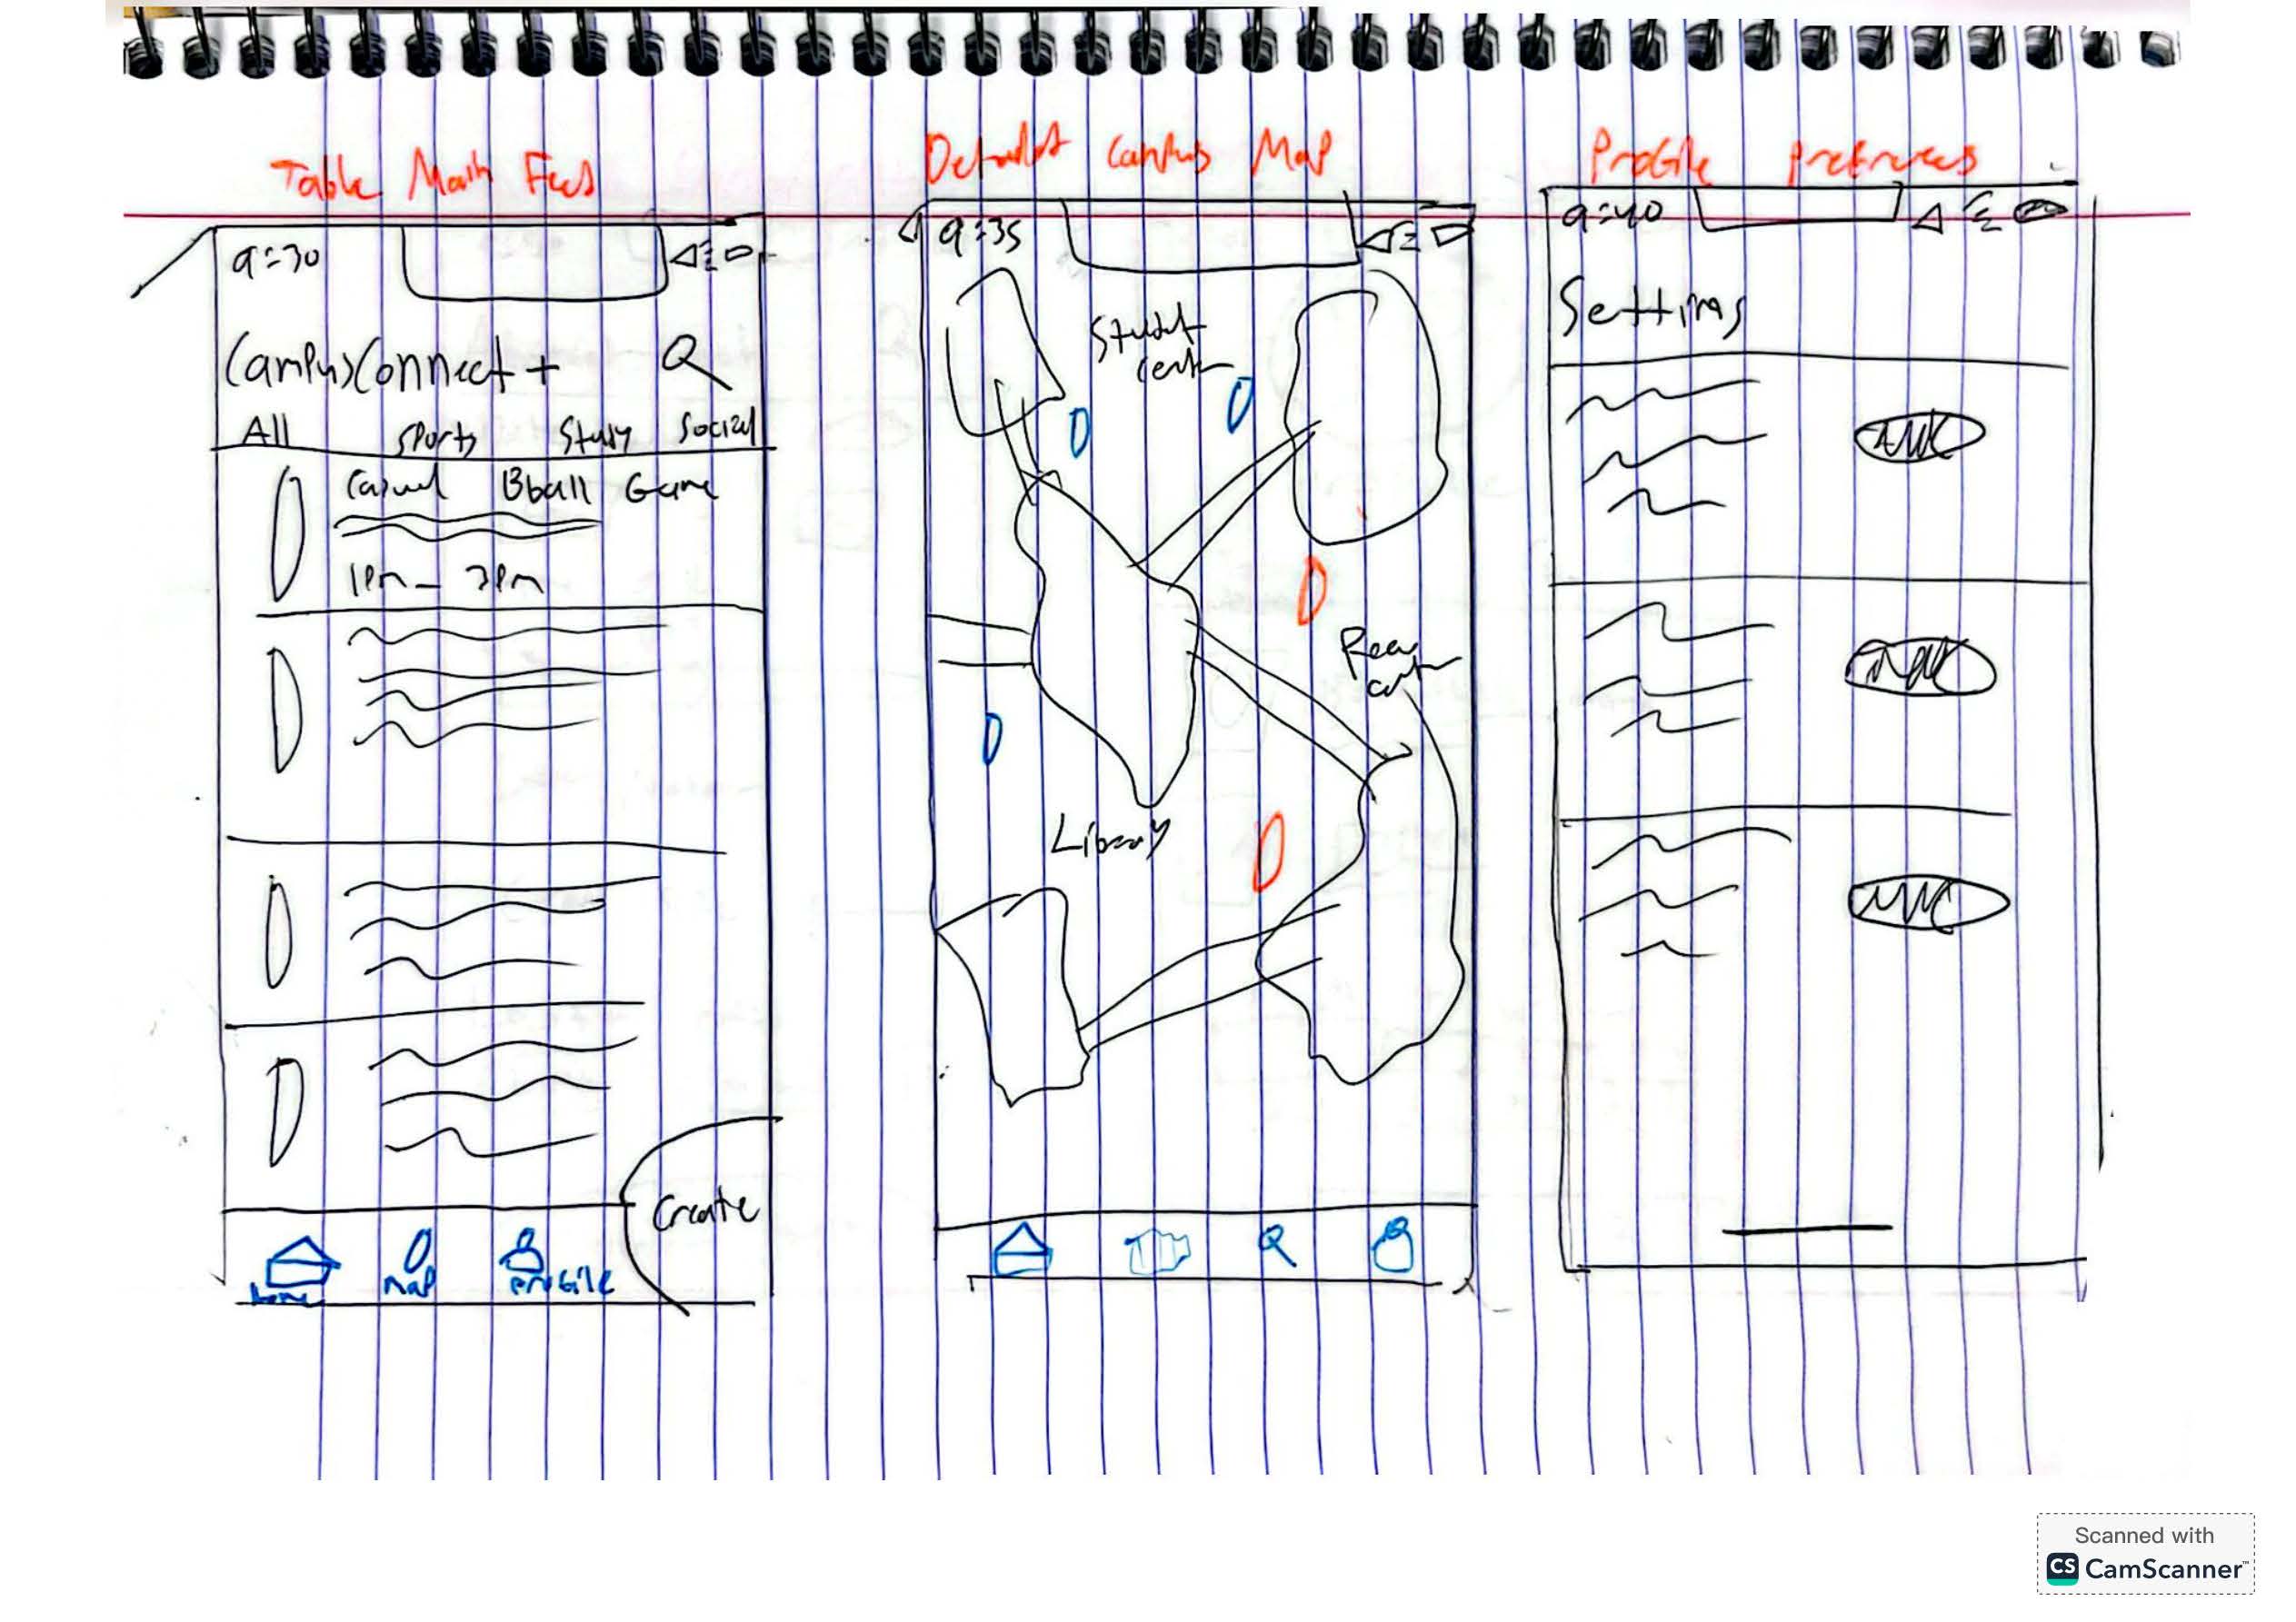 Table Main Feed
9:30
CampusConnect+
All Sports Study Social
Casual Bball Game
1pm - 3pm
Create
home map profile
Default Campus Map
9:35
Student
Center
Library
Profile Preferences
9:40
Settings
Scanned with
CS CamScanner™